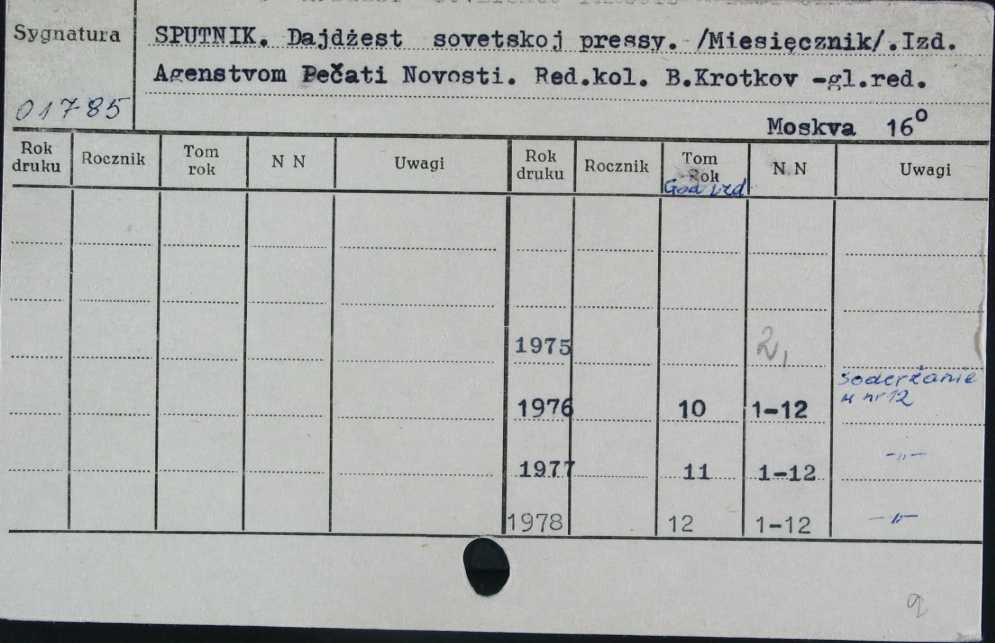 Sygnatura
SPUTNIK. Dajdżest sovetskoj pressy. /Miesięcznik/.Izd.
Agenstvom Pečati Novosti. Red.kol. B.Krotkov -gl.red.
01785
Moskva 16°
Rok druku Rocznik Tom rok N N Uwagi Rok druku Rocznik Tom Rok N N Uwagi
God izd
1975 2,
Soderžanie
w nr 12
1976 10 1-12
1977 11 1-12 -„-
1978 12 1-12 -„-